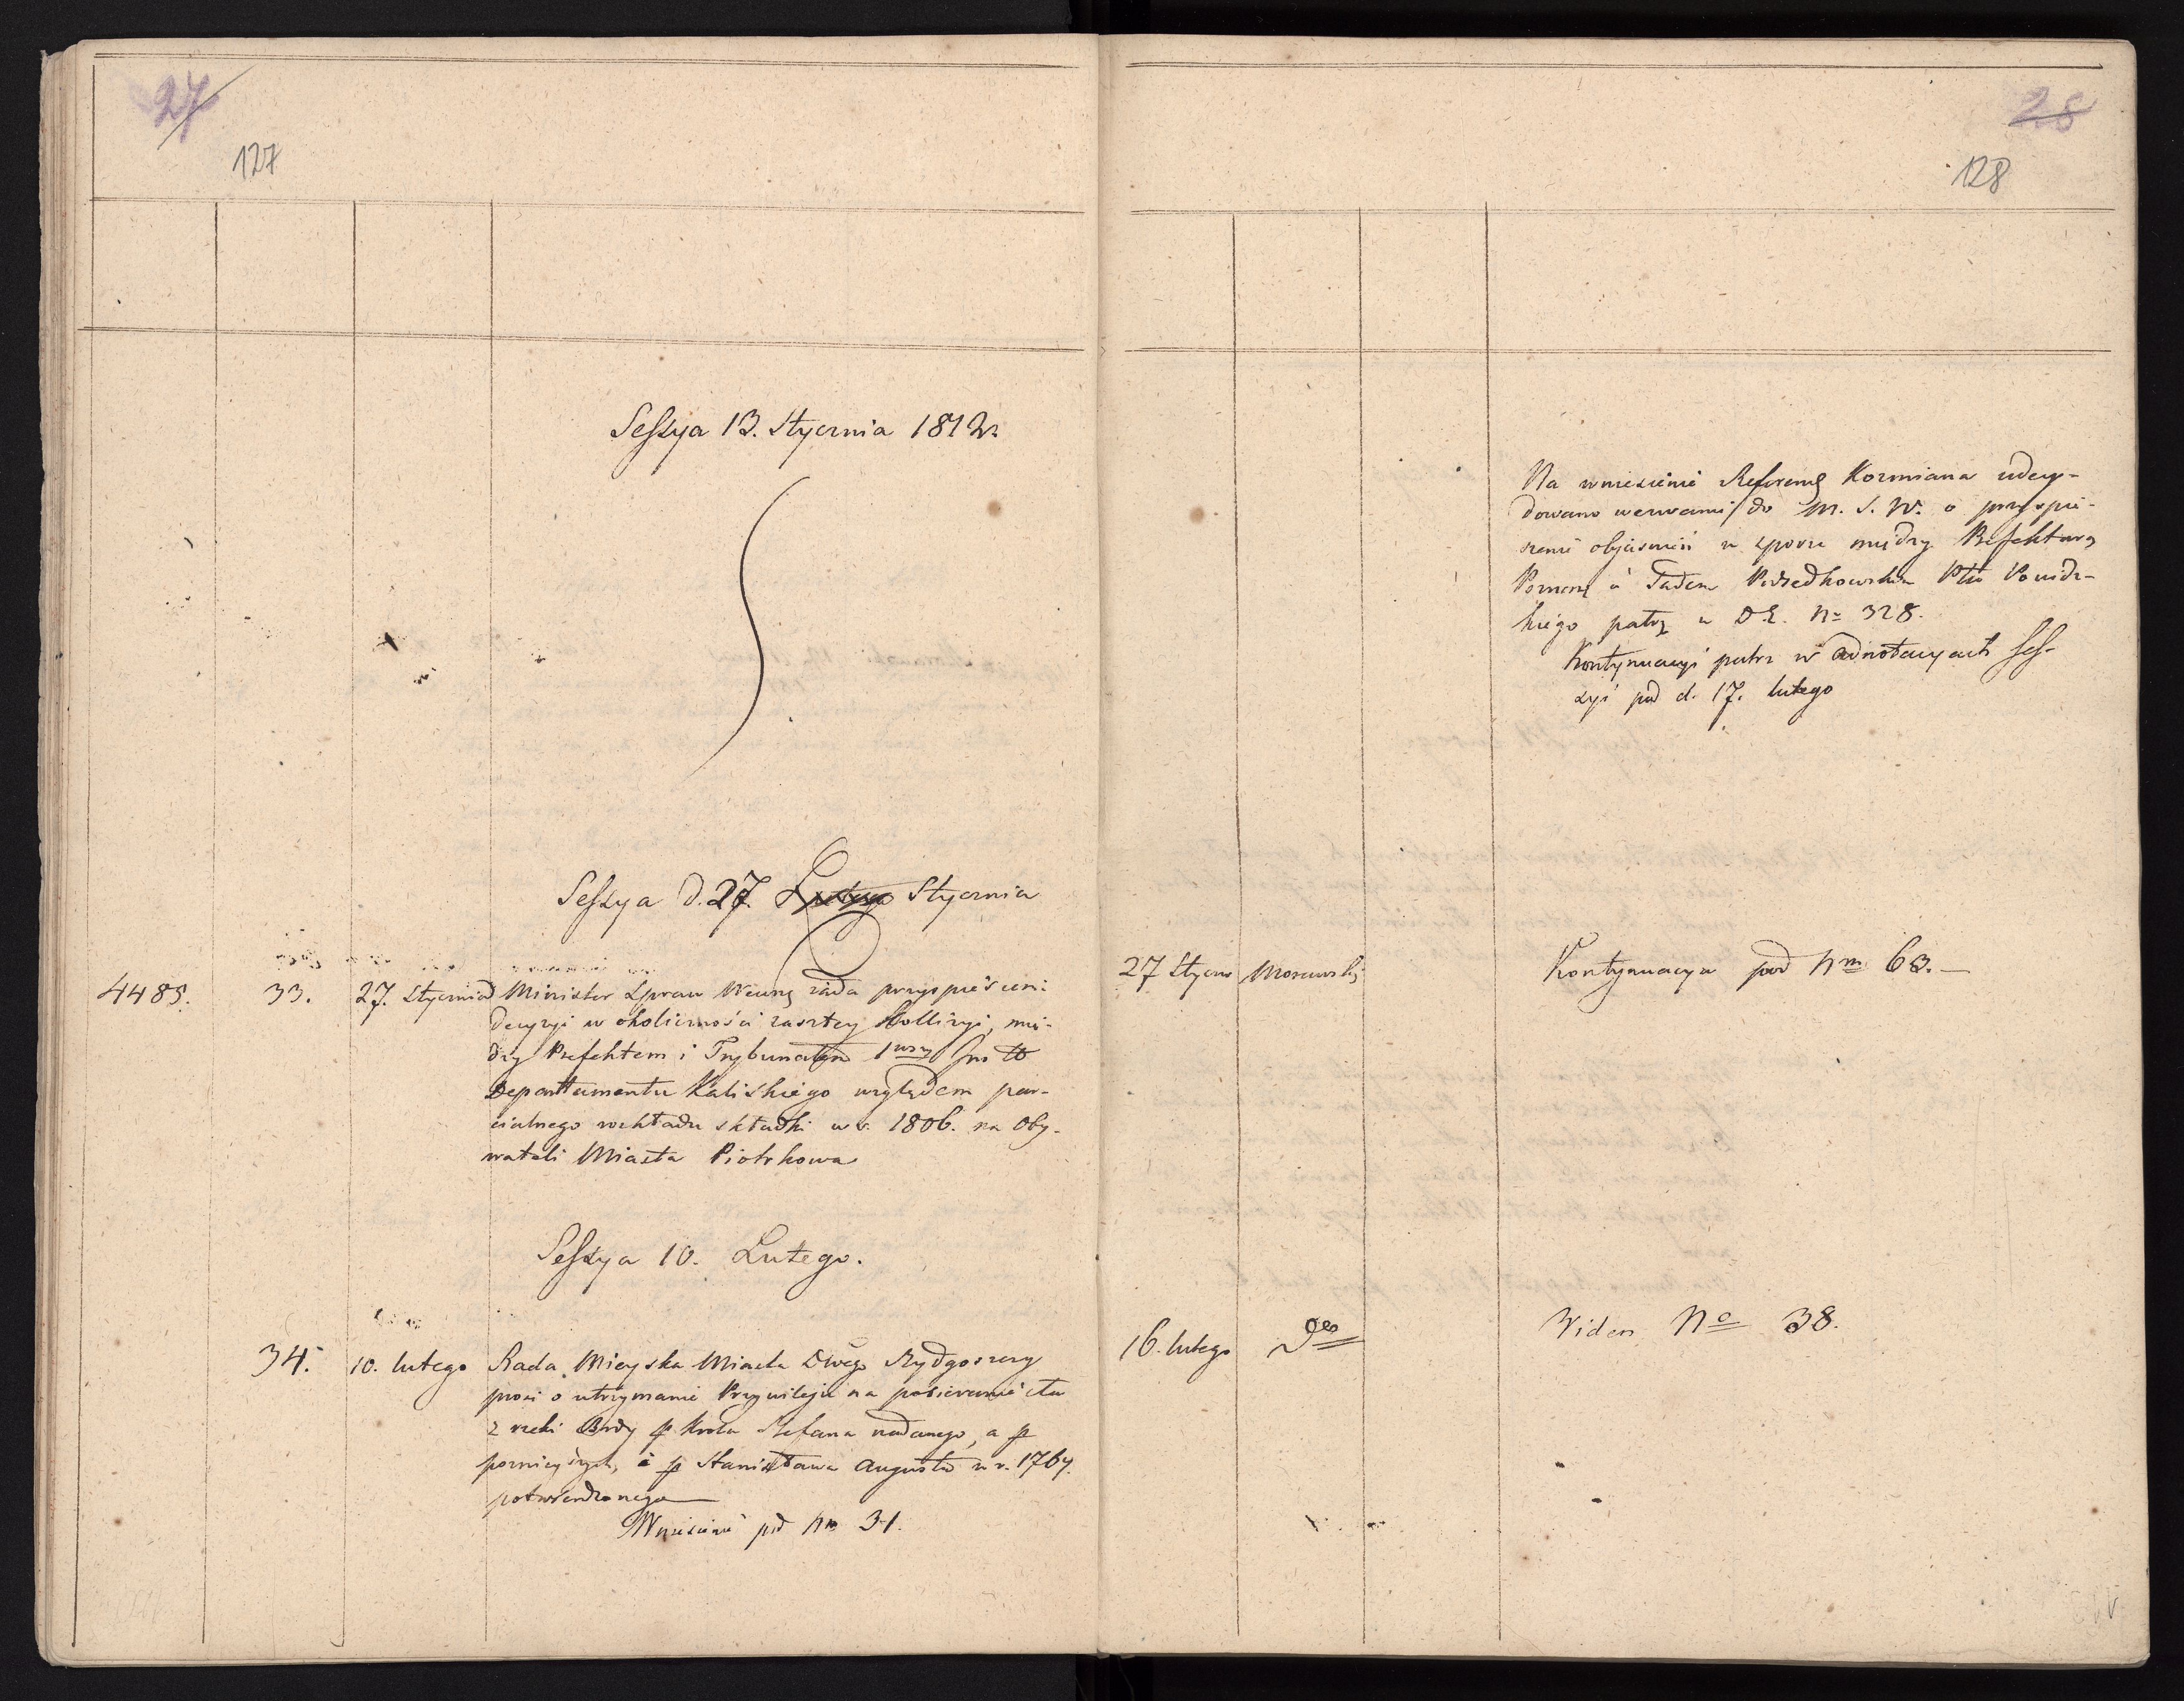 27
127
Sessya 13. Stycznia 1812r.
Sessya d. 27. Lutego Stycznia
4485. 33. 27. Stycznia Minister Spraw Wewnę żąda przyspieszeni
decyzyi w okoliczności zaszłey Kollizyi, mię-
dzy Prefektem i Trybunałem 1wszy
Departtamentu Kaliskiego względem par-
cialnego rozkładu składki w r. 1806. na Oby-
wateli Miasta Piotrkowa
Sessya 10. Lutego.
34. 10. lutego Rada Mieyska Miasta Bydgoszczy
prosi o utrzymanie Przywileju na pobieranie cła
z rzeki Brdy p Krola Stefana nadanego, a p
poznieyszych, i p Stanisława Augusta w r. 1764.
potwierdzonego
Wniesienie pod Nm 31.
28
128
Na wniesienie Referenę Kozmiana zdecy-
dowano wezwanie do M. S. W. o przyspie-
szenie objasnień w sporze między Prefekturą
Poznanę a Tadeu
kiego patrz w D.E. No 328.
Kontynuacyi patrz w adnotacyach Ses-
syi pod d. 17. lutego
27 Styczn Morawski Kontynuacya pod Nm 63.—
16. lutego do Widen No 38.